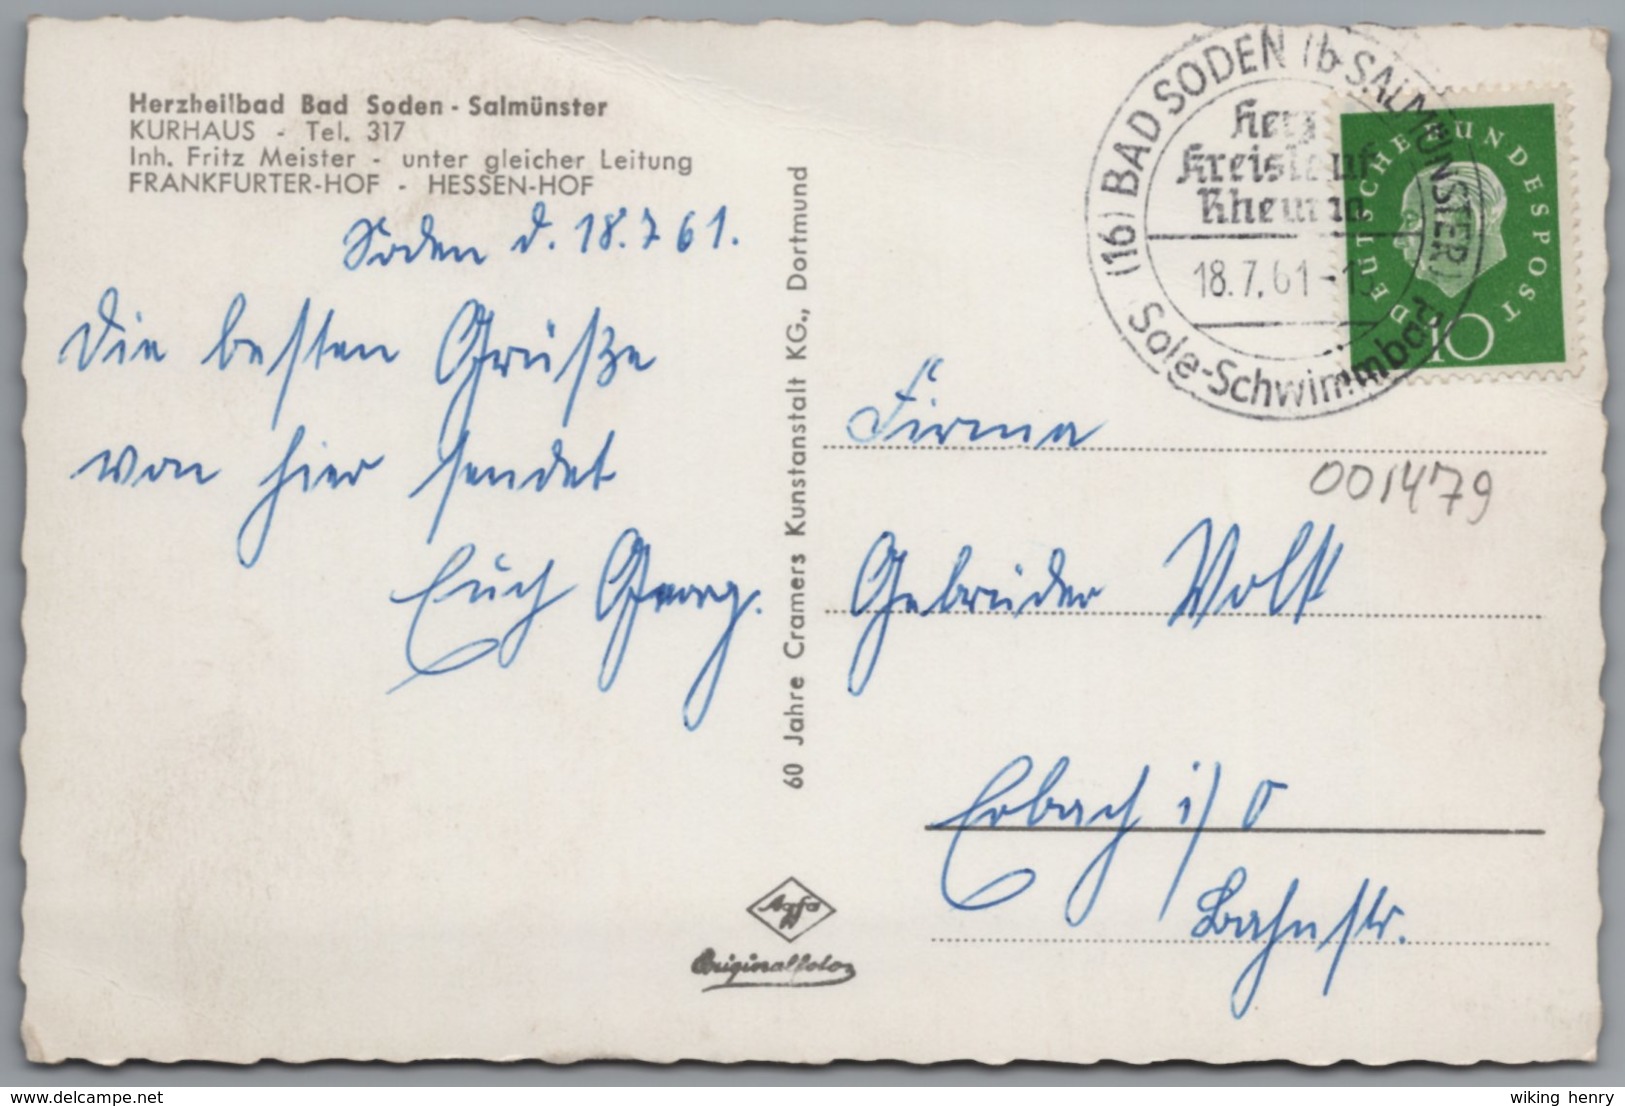 Herzheilbad Bad Soden - Salmünster
KURHAUS - Tel. 317
Inh. Fritz Meister - unter gleicher Leitung
FRANKFURTER-HOF - HESSEN-HOF
Soden d. 18.7.61.
Die besten Grüße
von hier sendet
Euch Georg.
60 Jahre Cramers Kunstanstalt KG., Dortmund
Agfa
Originalfoto
(16) BAD SODEN (b SALMÜNSTER)
Herz
Kreislauf
Rheuma
18.7.61-13
Sole-Schwimmbad
DEUTSCHE BUNDESPOST
10
Firma
001479
Gebrüder Volk
Erbach i/O
Bahnstr.
delcampe.net
wiking henry